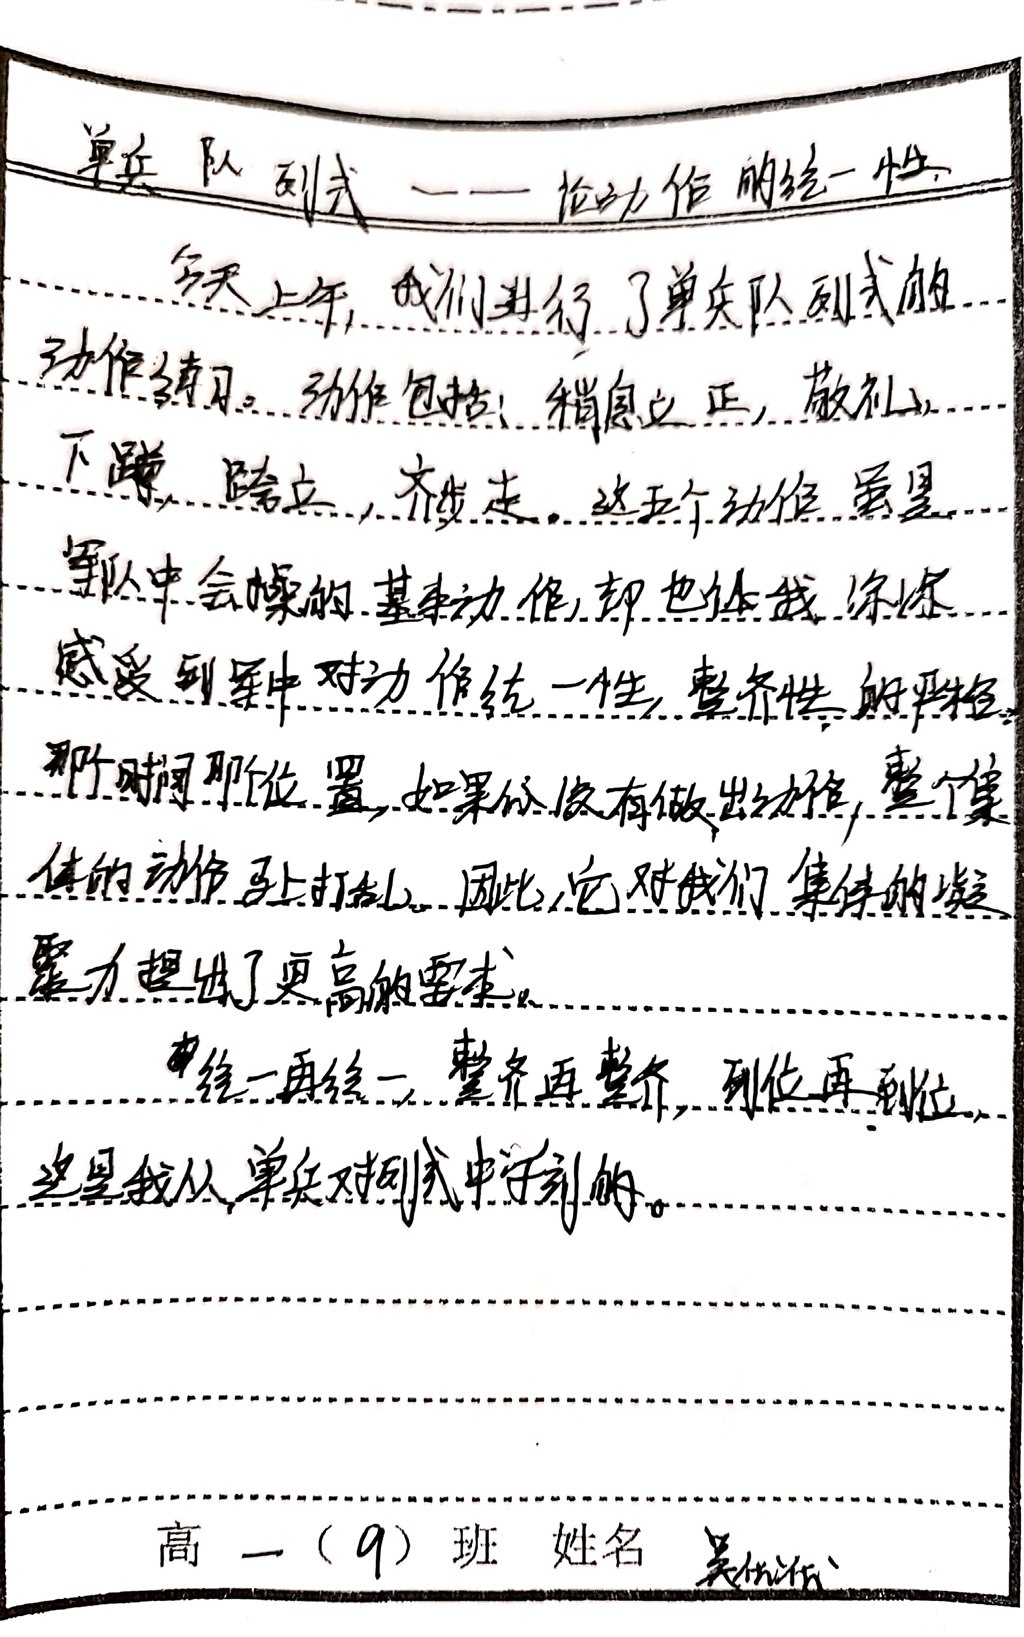 单兵队列式——论动作的统一性
今天上午,我们进行了单兵队列式的
动作练习。动作包括:稍息立正,敬礼,
下蹲,跨立,齐步走。这五个动作虽是
军队中会操的基本动作,却也体我深深
感受到军中对动作统一性,整齐性的严格。
那个时间那个位置,如果你没有做出动作,整个集
体的动作马上打乱。因此,它对我们集体的凝
聚力提出了更高的要求。
统一再统一,整齐再整齐,到位再到位,
这是我从单兵对列式中学到的。
高一(9)班 姓名 吴